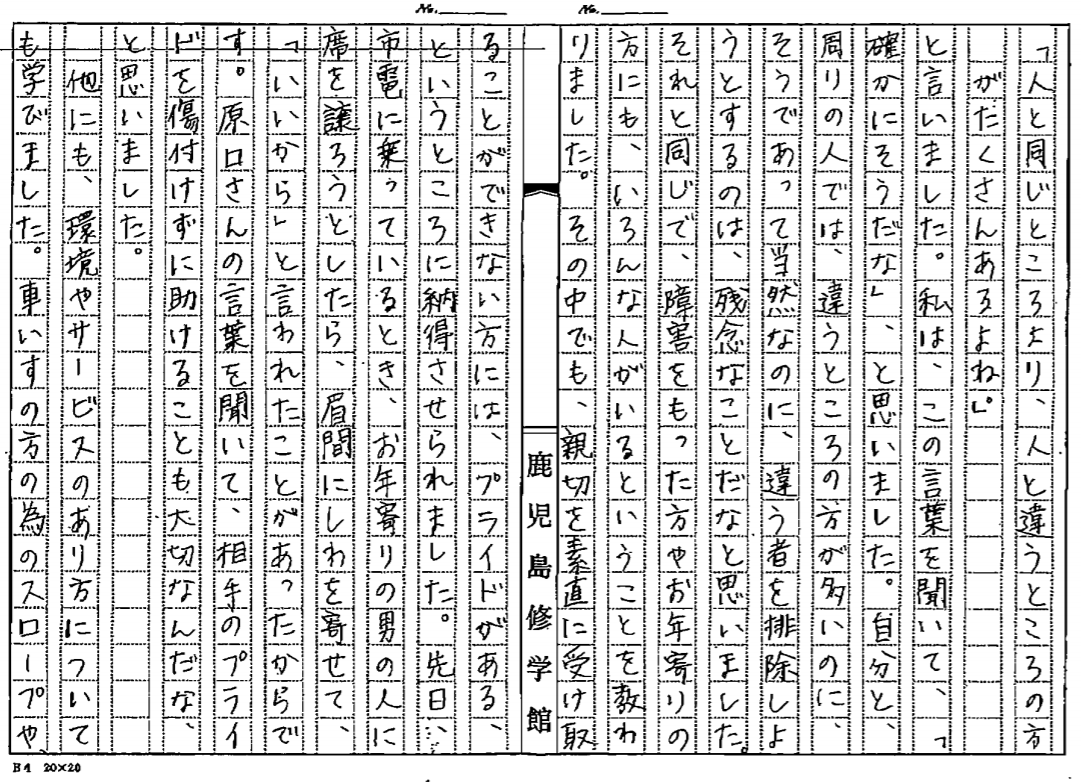 №
№
「人と同じところより、人と違うところの方
がたくさんあるよね」。
と言いました。私は、この言葉を聞いて、「
確かにそうだな」、と思いました。自分と、
周りの人では、違うところの方が多いのに、
そうであって当然なのに、違う者を排除しよ
うとするのは、残念なことだなと思いました。
それと同じで、障害をもった方やお年寄りの
方にも、いろんな人がいるということを教わ
りました。その中でも、親切を素直に受け取
鹿児島修学館
ることができない方には、プライドがある、
というところに納得させられました。先日、
市電に乗っているとき、お年寄りの男の人に
席を譲ろうとしたら、眉間にしわを寄せて、
「いいから」と言われたことがあったからで
す。原口さんの言葉を聞いて、相手のプライ
ドを傷付けずに助けることも大切なんだな、
と思いました。
他にも、環境やサービスのあり方について
も学びました。車いすの方の為のスロープや、
B4 20×20